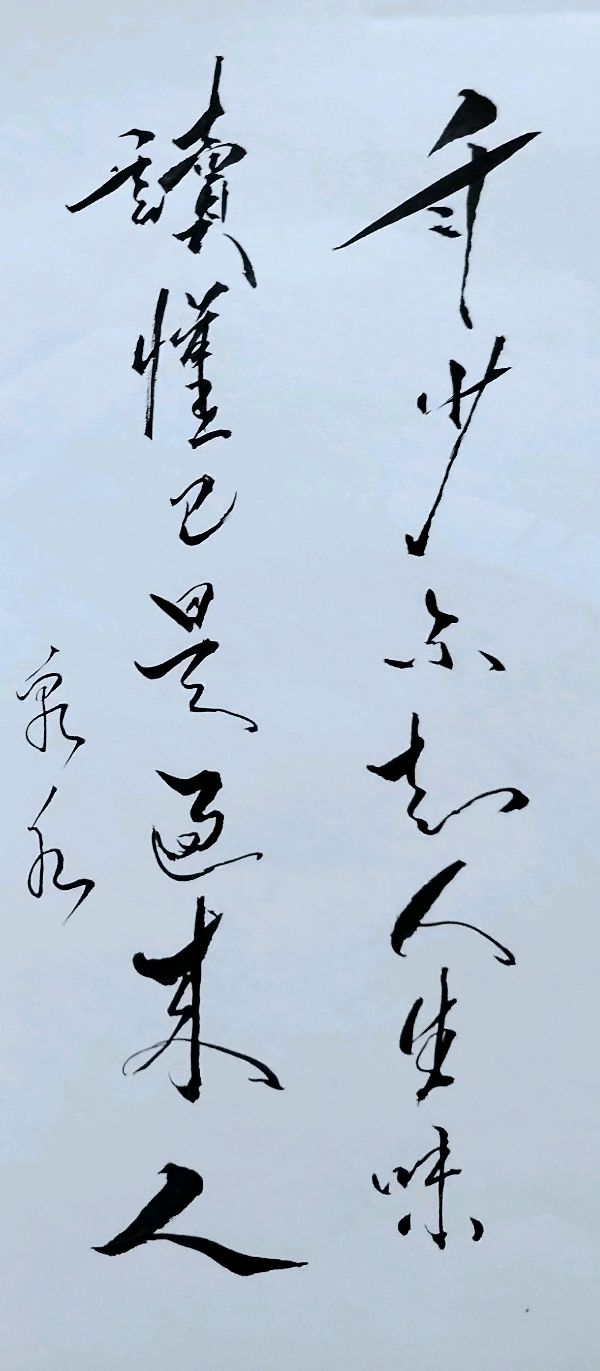 年少不知人生味
讀懂已是過来人
泉水